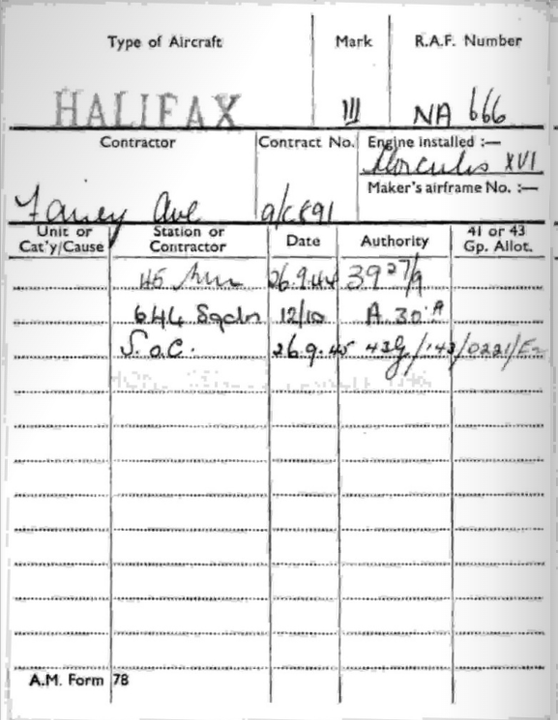 Type of Aircraft Mark R.A.F. Number
HALIFAX III NA 666
Contractor Contract No. Engine installed :—
Hercules XVI
Maker's airframe No. :—
Fairey Ave 9/C891
Unit or Cat'y/Cause Station or Contractor Date Authority 41 or 43 Gp. Allot.
45 26.9.44 39 27/9
644 Sqdn 12/10 A.30 A
S.o.C. 26.9.45 43g/143/0221/E
A.M. Form 78